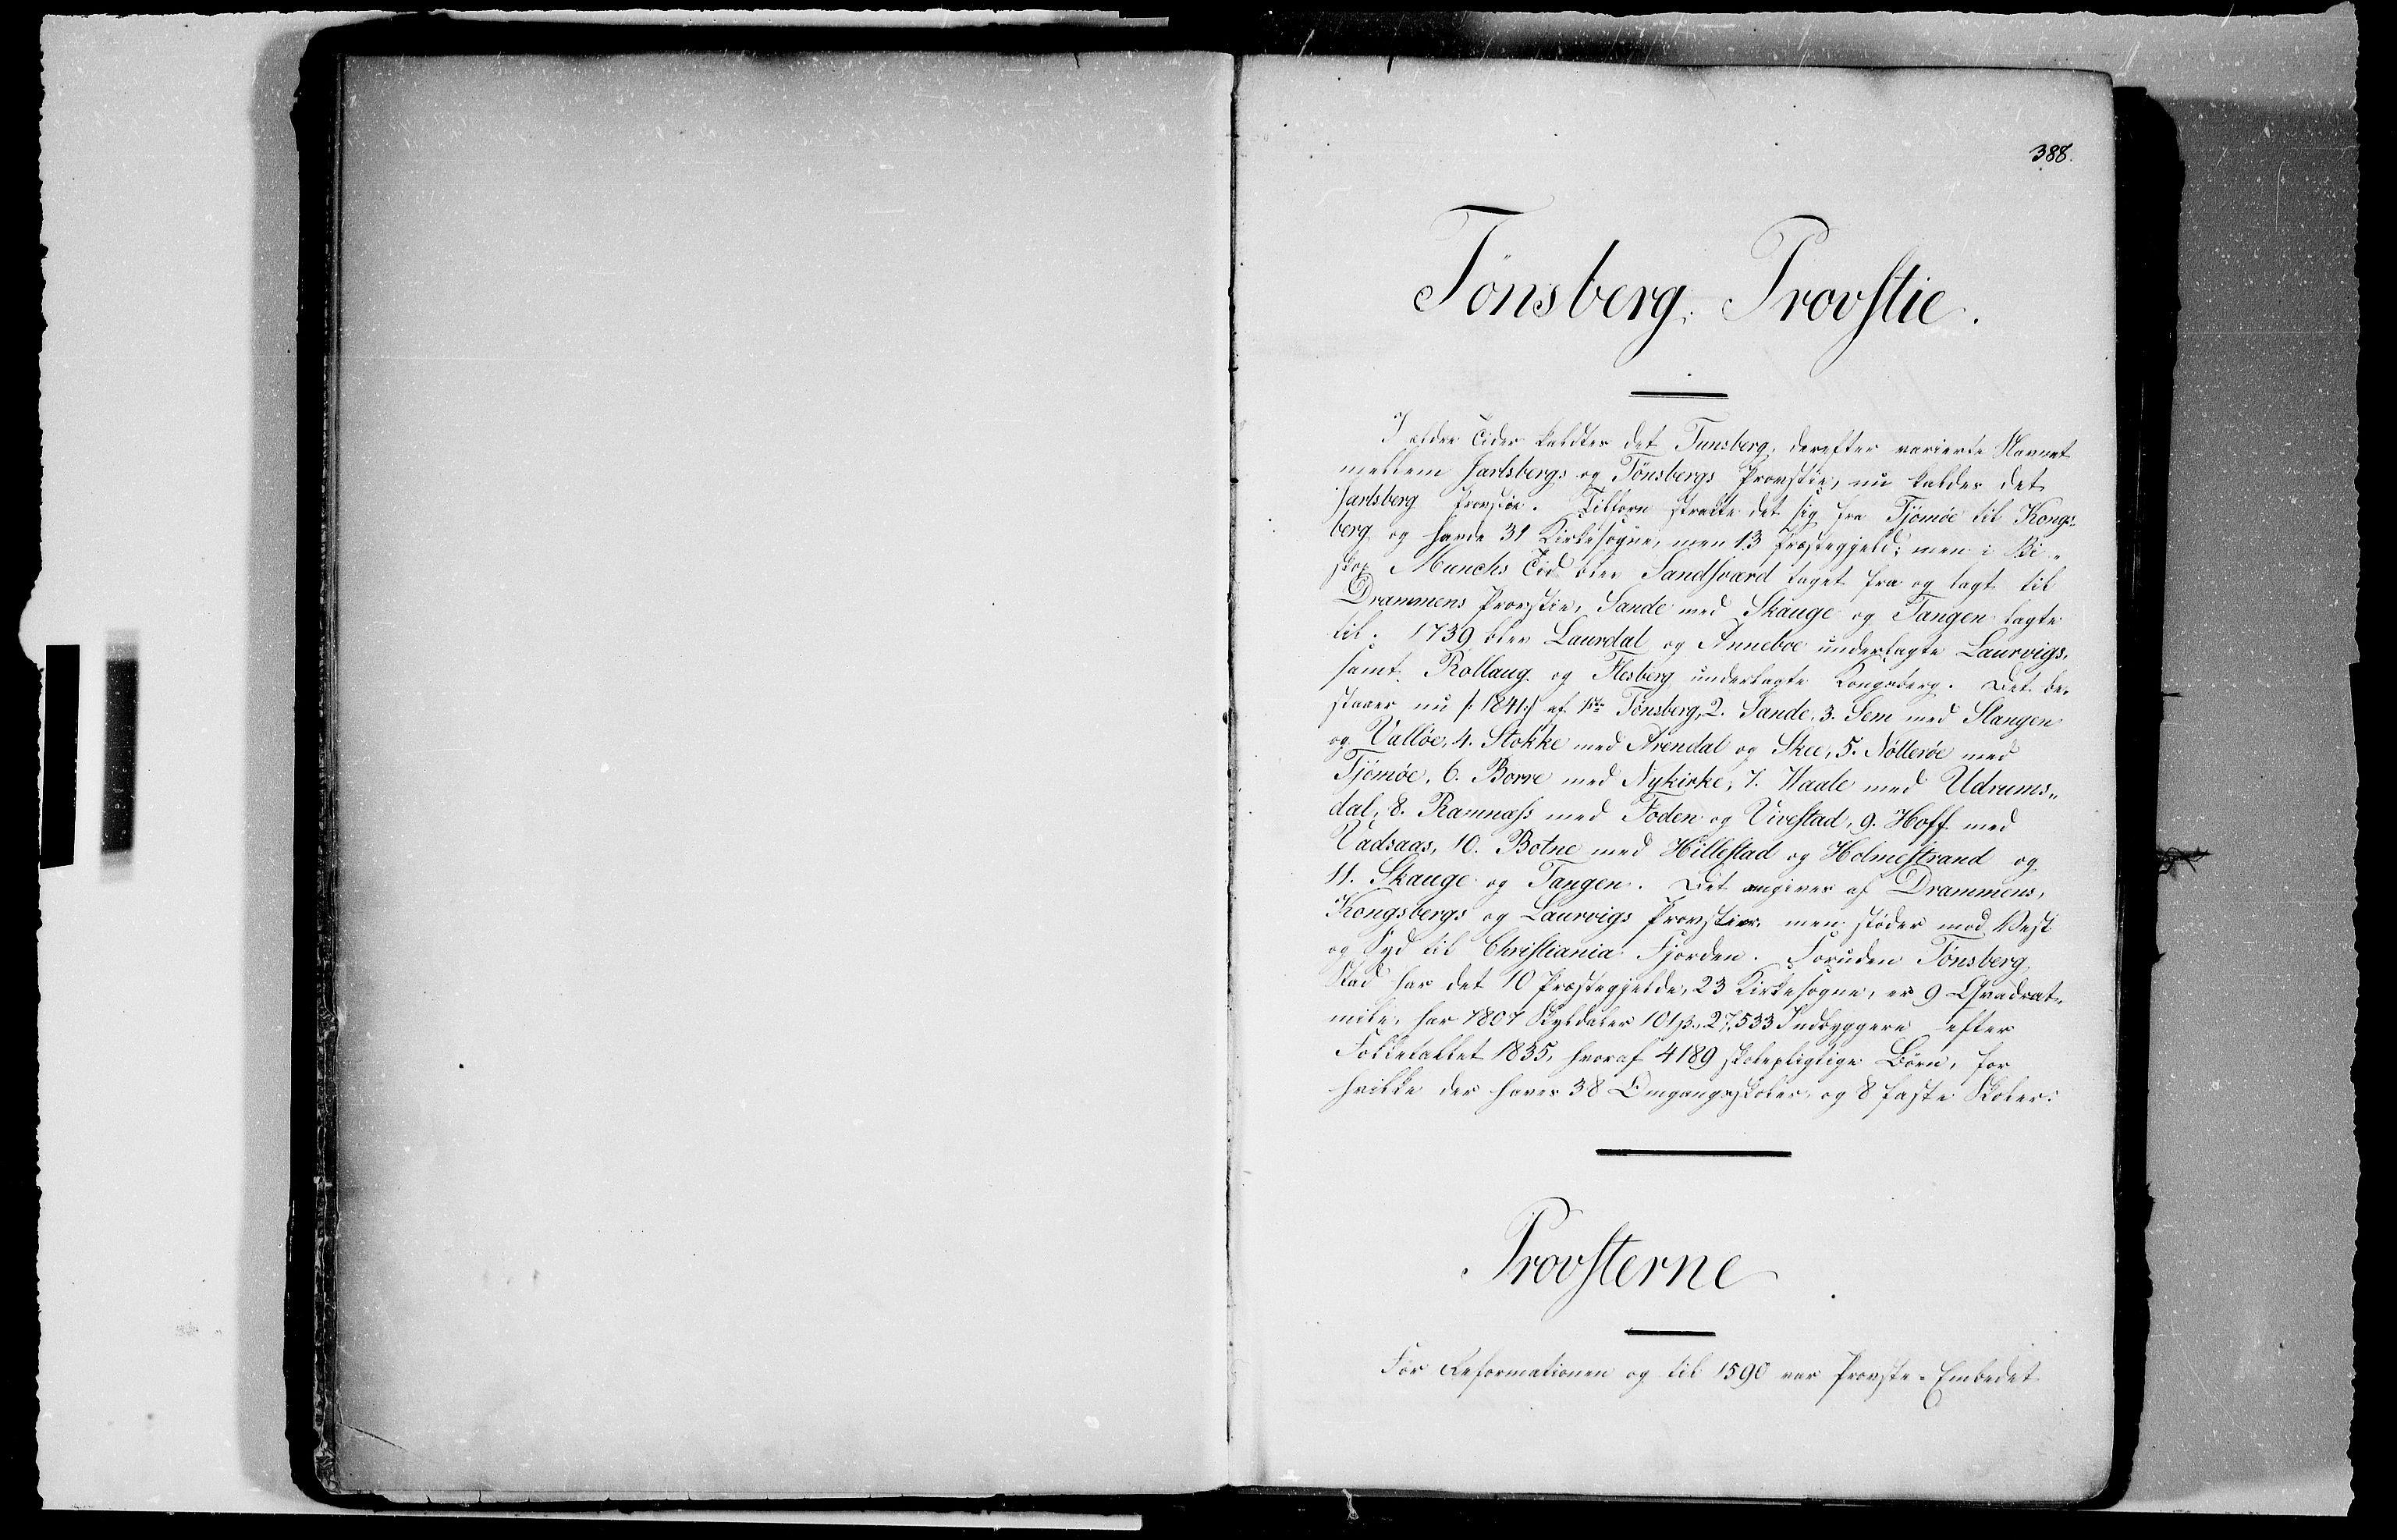 388.
Tönsberg Provstie.
I ældre Tider kaldtes det Tunsberg, derefter varierte Navnet
mellem Jarlsbergs og Tönsbergs Provstie, nu kaldes det
Jarlsberg Provstie. Tilforn strakte det sig fra Tjömöe til Kongs-
berg og havde 31 Kirkesogne, men 13 Præstegjeld; men i Bi-
skop Munchs Tid blev Sandsværd taget fra og lagt til
Drammens Provstie, Sande med Skauge og Tangen lagte
til. 1739 blev Laurdal og Anneboe underlagte Laurvigs,
samt Rollaug og Flesberg underlagte Kongsberg. Det be-
staaer nu /: 1841 :/ af 1ste Tönsberg, 2. Sande, 3. Sem med Slangen
og Valløe, 4. Stokke med Arendal og Skee, 5. Nøtterøe med
Tjömøe, 6. Borre med Nykirke, 7. Waale med Udrums-
dal, 8. Ramnæss med Foden og Vivestad, 9. Hoff med
Vadsaas, 10. Botne med Hillestad og Holmestrand og
11. Skauge og Tangen. Det omgives af Drammens,
Kongsbergs og Laurvigs Provstier, men støder mod Vest
og Syd til Christiania Fjorden. Foruden Tönsberg
Stad har det 10 Præstegjelde, 23 Kirkesogne, er 9 Qvadrat-
mile, har 7807 Skyldaler 101 ß., 27,533 Indbyggere efter
Folketallet 1835, hvoraf 4189 skolepligtige Börn, for
hvilke der haves 38 Omgangsskoler, og 8 faste Skoler.
Provsterne
Før Reformationen og til 1590 var Provste-Embedet